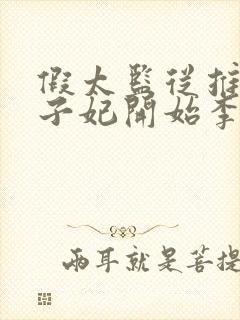 假太監從推
子妃開始李
兩耳就是菩提